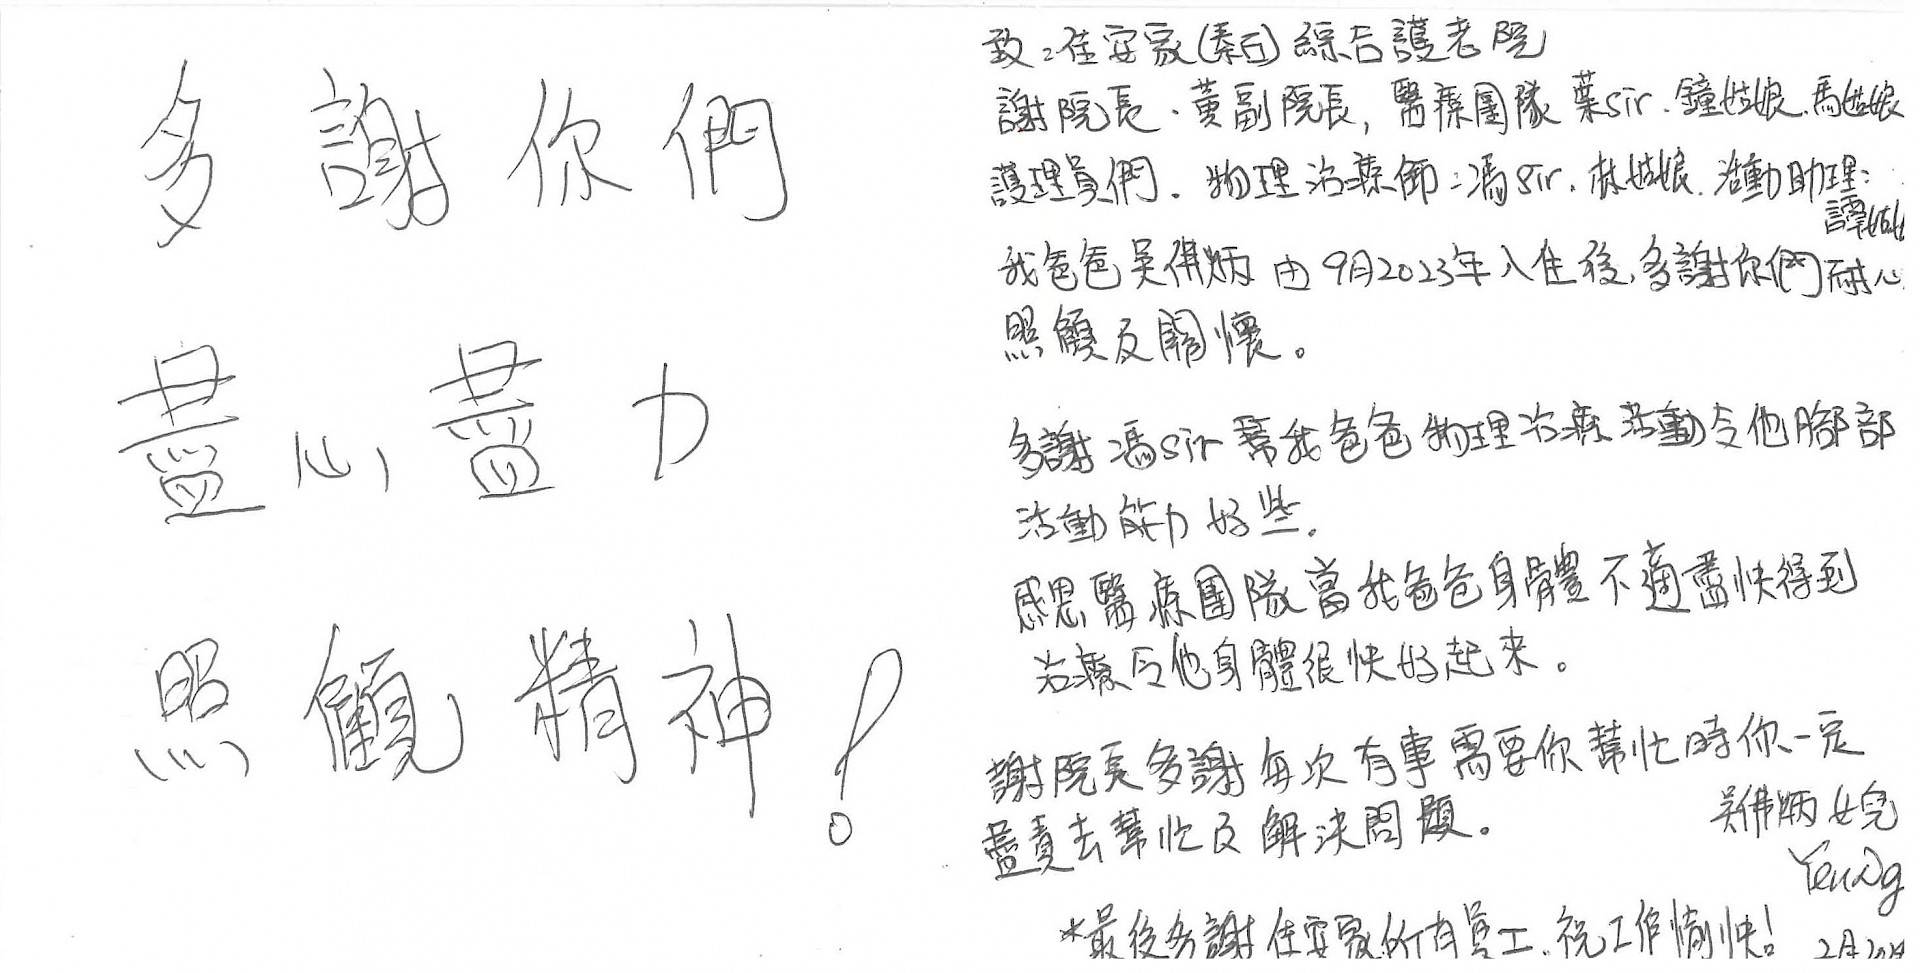 多謝你們
盡心盡力
照顧精神!
致:佳安家(秦石)綜合護老院
謝院長、黃副院長, 醫療團隊 葉sir、鐘姑娘、馬姑娘
護理員們、物理治療師:馮sir、林姑娘、活動助理:
譚姑
我爸爸吳佛炳由9月2023年入住後,多謝你們耐心
照顧及關懷。
多謝馮sir幫我爸爸物理治療活動令他腳部
活動能力好些.
感恩醫療團隊當我爸爸身體不適盡快得到
治療令他身體很快好起來。
謝院長多謝每次有事需要你幫忙時你一定
盡責去幫忙及解決問題。
吳佛炳女兒
*最後多謝佳安家所有員工、祝工作愉快!
2月